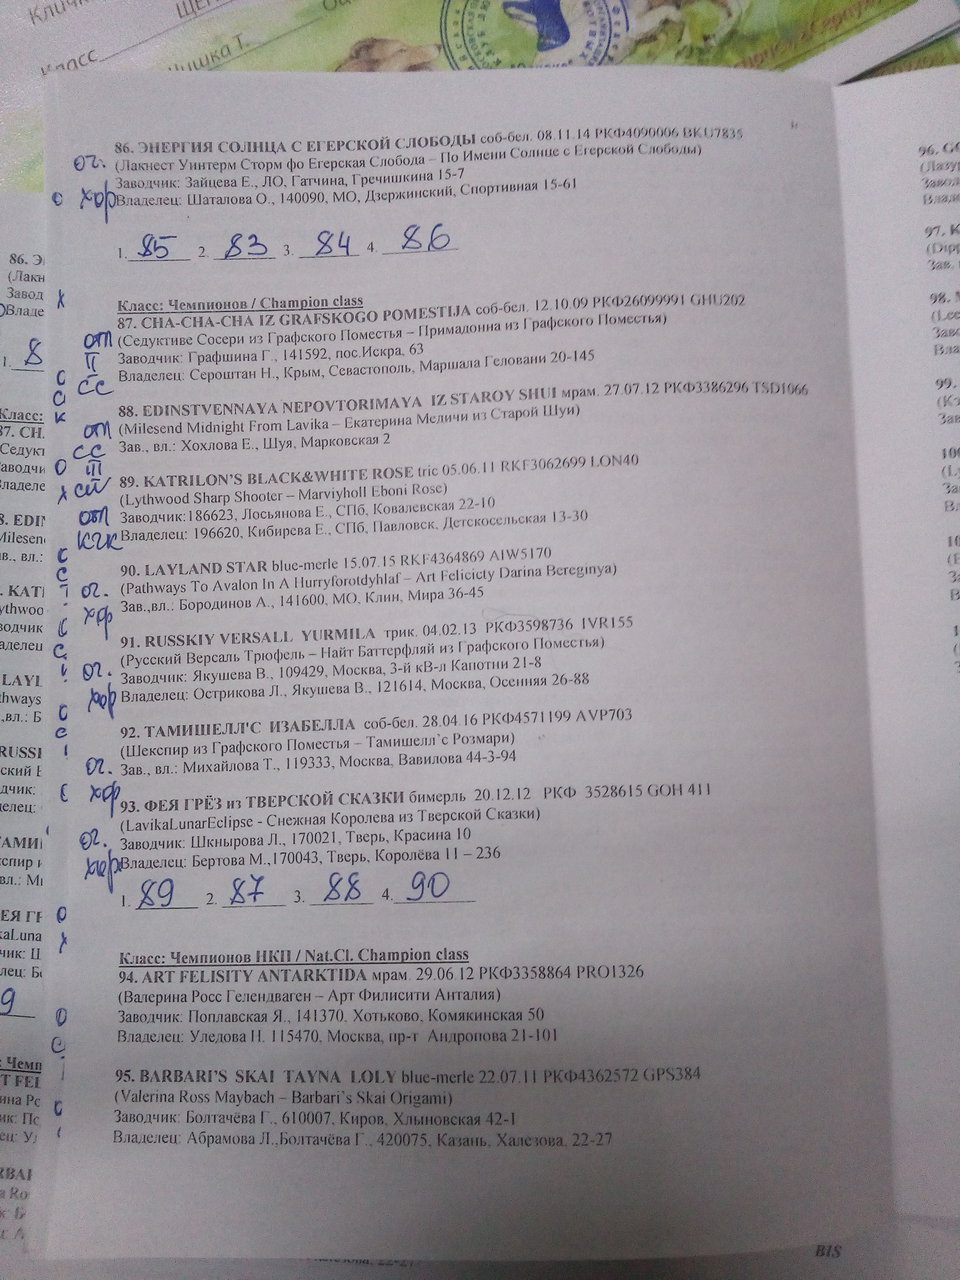 86. ЭНЕРГИЯ СОЛНЦА С ЕГЕРСКОЙ СЛОБОДЫ соб-бел. 08.11.14 РКФ4090006 BKU7835
оч.
(Лакнест Уинтерм Сторм фо Егерская Слобода – По Имени Солнце с Егерской Слободы)
Заводчик: Зайцева Е., ЛО, Гатчина, Гречишкина 15-7
хор
Владелец: Шаталова О., 140090, МО, Дзержинский, Спортивная 15-61
1. 85 2. 83 3. 84 4. 86
Класс: Чемпионов / Champion class
87. CHA-CHA-CHA IZ GRAFSKOGO POMESTIJA соб-бел. 12.10.09 РКФ26099991 GHU202
отл
(Седуктиве Сосери из Графского Поместья – Примадонна из Графского Поместья)
II
Заводчик: Графшина Г., 141592, пос.Искра, 63
СС
Владелец: Сероштан Н., Крым, Севастополь, Маршала Геловани 20-145
88. EDINSTVENNAYA NEPOVTORIMAYA IZ STAROY SHUI мрам. 27.07.12 РКФ3386296 TSD1066
отл
(Milesend Midnight From Lavika – Екатерина Медичи из Старой Шуи)
СС
Зав., вл.: Хохлова Е., Шуя, Марковская 2
III
89. KATRILON'S BLACK&WHITE ROSE tric 05.06.11 RKF3062699 LON40
(Lythwood Sharp Shooter – Marviyholl Eboni Rose)
отл
Заводчик:186623, Лосьянова Е., СПб, Ковалевская 22-10
КЧК
Владелец: 196620, Кибирева Е., СПб, Павловск, Детскосельская 13-30
90. LAYLAND STAR blue-merle 15.07.15 RKF4364869 AIW5170
оч.
(Pathways To Avalon In A Hurryforotdyhlaf – Art Felicicty Darina Bereginya)
хор
Зав.,вл.: Бородинов А., 141600, МО, Клин, Мира 36-45
91. RUSSKIY VERSALL YURMILA трик. 04.02.13 РКФ3598736 IVR155
(Русский Версаль Трюфель – Найт Баттерфляй из Графского Поместья)
оч.
Заводчик: Якушева В., 109429, Москва, 3-й кВ-л Капотни 21-8
хор
Владелец: Острикова Л., Якушева В., 121614, Москва, Осенняя 26-88
92. ТАМИШЕЛЛ'С ИЗАБЕЛЛА соб-бел. 28.04.16 РКФ4571199 AVP703
(Шекспир из Графского Поместья – Тамишелл`с Розмари)
оч.
Зав., вл.: Михайлова Т., 119333, Москва, Вавилова 44-3-94
хор
93. ФЕЯ ГРЁЗ из ТВЕРСКОЙ СКАЗКИ бимерль 20.12.12 РКФ 3528615 GOH 411
(LavikaLunarEclipse - Снежная Королева из Тверской Сказки)
оч.
Заводчик: Шкнырова Л., 170021, Тверь, Красина 10
хор
Владелец: Бертова М.,170043, Тверь, Королёва 11 – 236
1. 89 2. 87 3. 88 4. 90
Класс: Чемпионов НКП / Nat.Cl. Champion class
94. ART FELISITY ANTARKTIDA мрам. 29.06.12 РКФ3358864 PRO1326
(Валерина Росс Гелендваген – Арт Филисити Анталия)
Заводчик: Поплавская Я., 141370, Хотьково, Комякинская 50
Владелец: Уледова Н. 115470, Москва, пр-т Андропова 21-101
95. BARBARI'S SKAI TAYNA LOLY blue-merle 22.07.11 РКФ4362572 GPS384
(Valerina Ross Maybach – Barbari`s Skai Origami)
Заводчик: Болтачёва Г., 610007, Киров, Хлыновская 42-1
Владелец: Абрамова Л.,Болтачёва Г., 420075, Казань, Халезова, 22-27
BIS